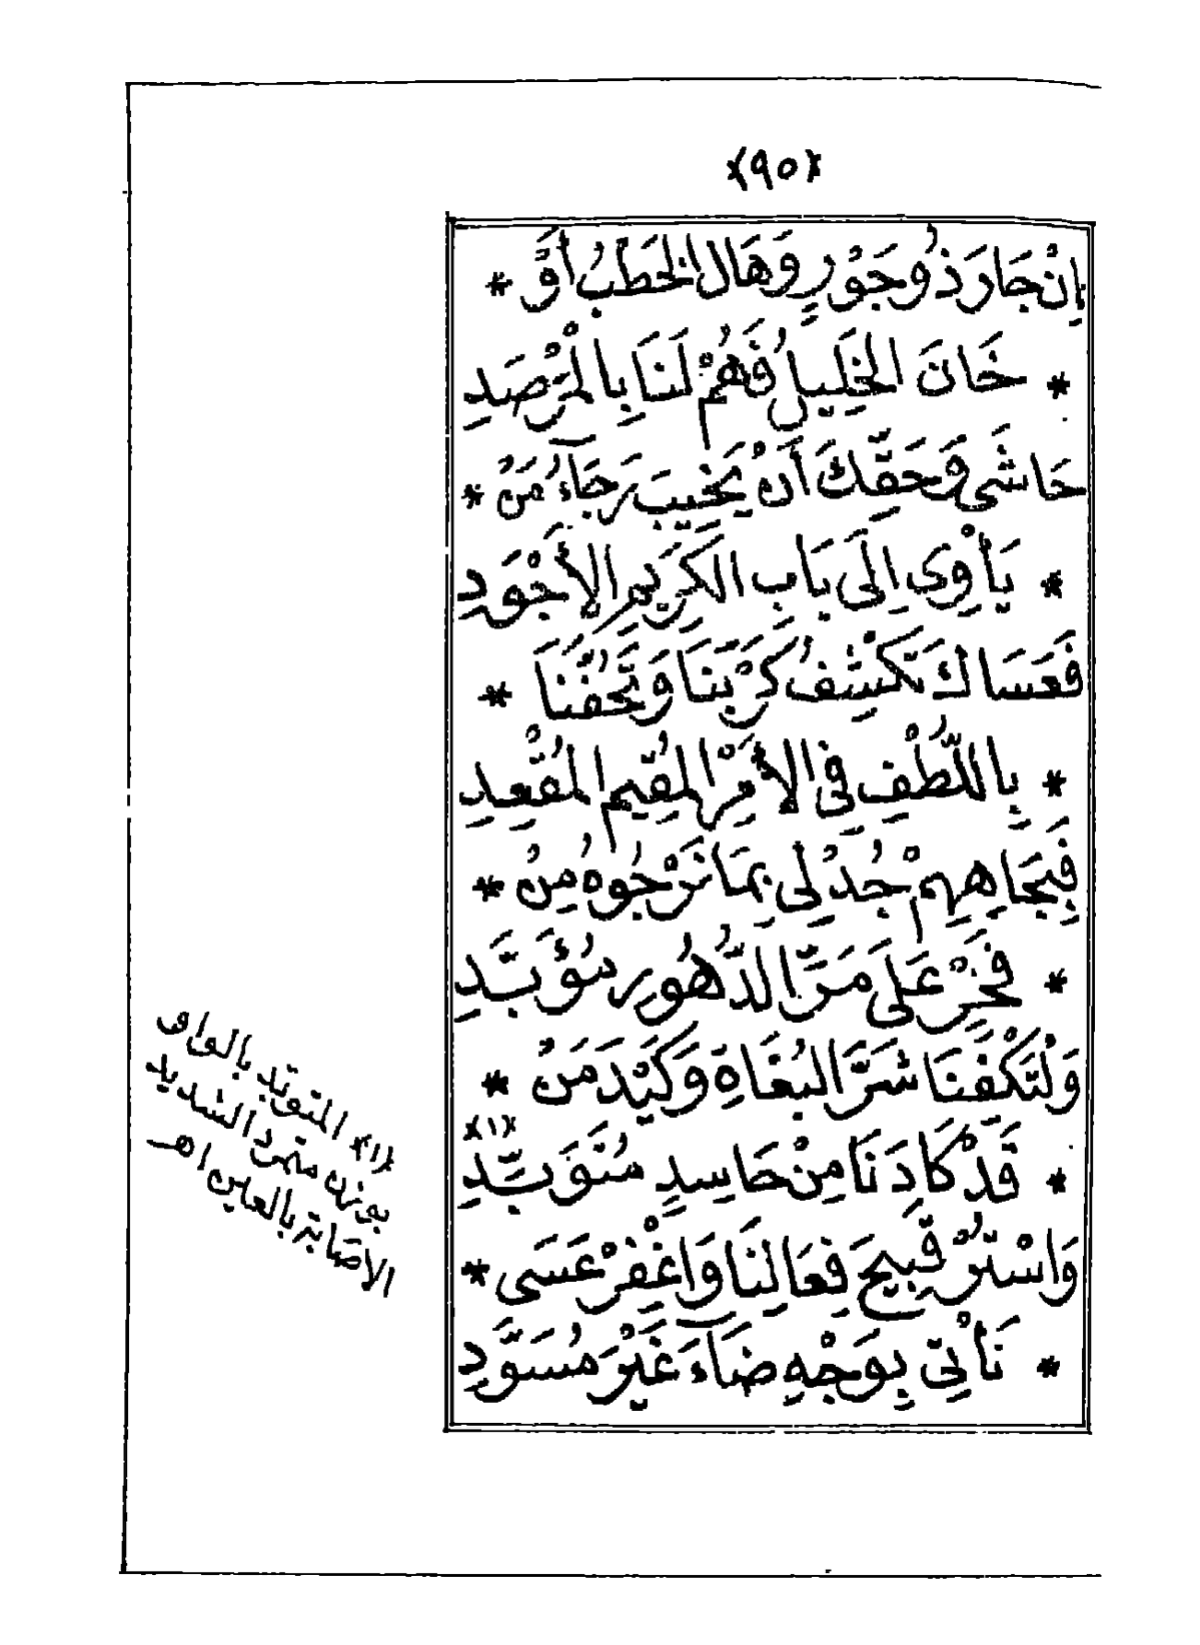 ﴿٩٥﴾
إِنْ جَارَ ذُو جَوْرٍ وَهَالَ الْخَطْبُ أَوْ *
* خَانَ الْخَلِيلُ فَهُمْ لَنَا بِالْمَرْصَدِ
حَاشَى وَحَقِّكَ أَنْ يَخِيبَ رَجَآءُ مَنْ *
* يَأْوِى إِلَى بَابِ الْكَرِيمِ الْأَجْوَدِ
فَعَسَاكَ تَكْشِفُ كَرْبَنَا وَتَحُفَّنَا *
* بِاللُّطْفِ فِي الْأَمْرِ الْمُقِيمِ الْمُقْعِدِ
فَبِجَاهِهِمْ جُدْ لِى بِمَا نَرْجُوهُ مِنْ *
* فَخْرٍ عَلَى مَرِّ الدُّهُورِ مُؤَبَّدِ
وَلْتَكْفِنَا شَرَّ الْبُغَاةِ وَكَيْدَ مَنْ *
* قَدْ كَادَنَا مِنْ حَاسِدٍ مُتَوَبِّدِ ﴿١﴾
وَاسْتُرْ قَبِيحَ فِعَالِنَا وَاغْفِرْ عَسَى *
* نَأْتِى بِوَجْهٍ ضَآءَ غَيْرَ مُسَوَّدِ
﴿١﴾ المتوبد بالواو
بوزن متمرد الشديد
الاصابة بالعين اهـ